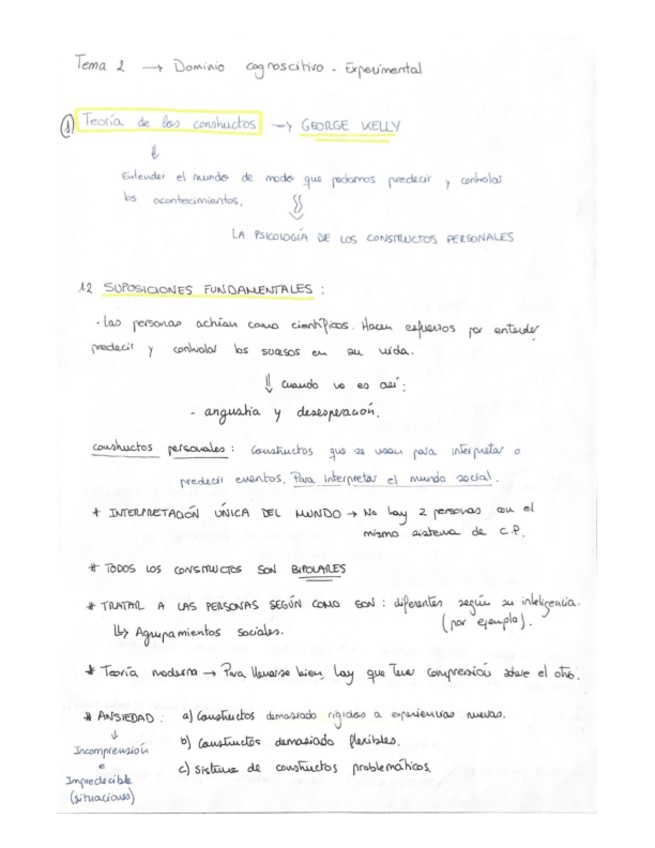 Tema 2 → Dominio cognoscitivo - Experimental
① Teoría de los constructos → GEORGE KELLY
↓
Entender el mundo de modo que podamos predecir y controlar
los acontecimientos.
LA PSICOLOGÍA DE LOS CONSTRUCTOS PERSONALES
12 SUPOSICIONES FUNDAMENTALES :
· Las personas actúan como científicos. Hacen esfuerzos por entender
predecir y controlar los sucesos en su vida.
⇓ cuando no es así:
- angustia y desesperación.
constructos personales : Constructos que se usan para interpretar o
predecir eventos. Para interpretar el mundo social.
* INTERPRETACIÓN ÚNICA DEL MUNDO → No hay 2 personas con el
mismo sistema de C.P.
* TODOS LOS CONSTRUCTOS SON BIPOLARES
* TRATAR A LAS PERSONAS SEGÚN COMO SON : diferentes según su inteligencia.
(por ejemplo).
↳ Agrupamientos sociales.
* Teoría moderna → Para llevarse bien hay que tener compresión sobre el otro.
* ANSIEDAD : a) Constructos demasiado rígidos a experiencias nuevas.
↓
b) Constructos demasiado flexibles.
Incomprensión
e
c) Sistema de constructos problemáticos.
Impredecible
(situaciones)